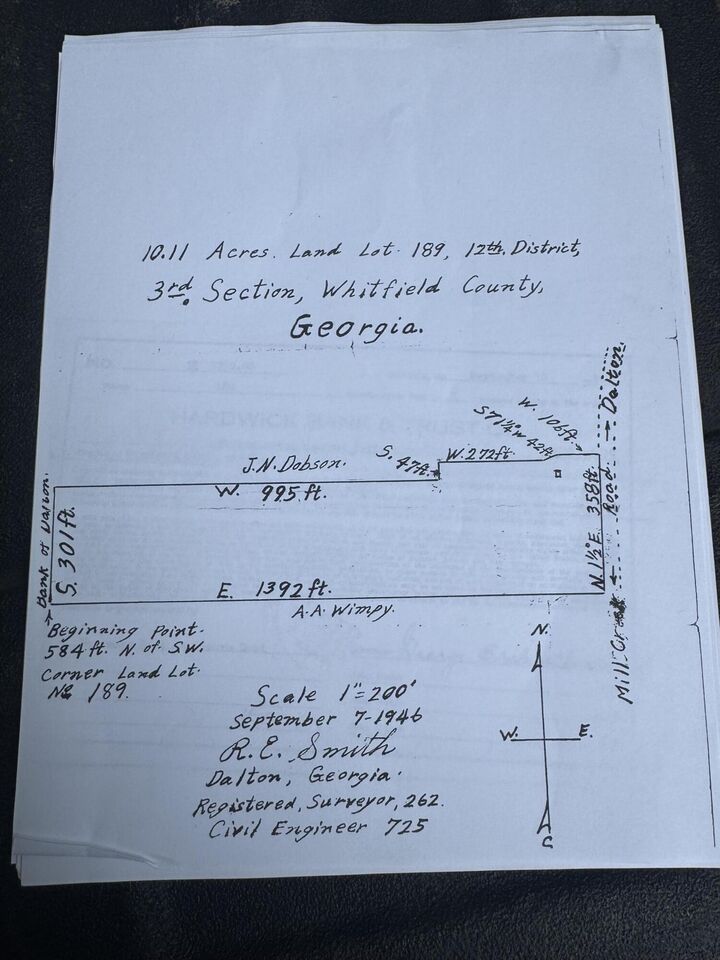 10.11 Acres. Land Lot 189, 12th. District,
3rd. Section, Whitfield County,
Georgia.
→ Dalton.
W. 106ft.
S 71¼° W 42ft.
J.N. Dobson.
S. 47ft.
W. 272ft.
W. 995 ft.
S. 301 ft.
Bank of Dalton.
N. 1½° E. 358 ft.
Road
Mill Creek
E. 1392 ft.
A.A. Wimpy.
Beginning Point.
584 ft. N. of S.W.
Corner Land Lot.
No. 189.
Scale 1"=200'
September 7-1946
R.E. Smith
Dalton, Georgia.
Registered, Surveyor, 262.
Civil Engineer 725
N.
W. E.
S
HARDWICK BANK &